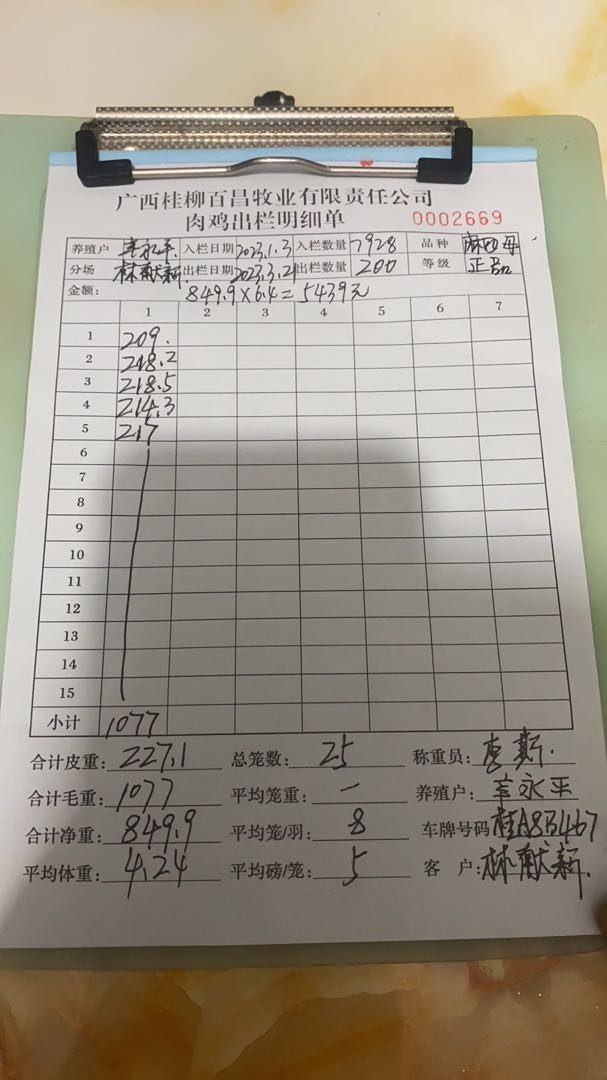 广西桂柳百昌牧业有限责任公司
肉鸡出栏明细单 0002669
养殖户 永平 入栏日期 2023.1.3 入栏数量 7928 品种
分场 林献新 出栏日期 2023.3.21 出栏数量 200 等级 正品
金额: 849.9×6.4=5439元
1 2 3 4 5 6 7
1 209.
2 218.2
3 218.5
4 214.3
5 217
6
7
8
9
10
11
12
13
14
15
小计 1077
合计皮重: 227.1 总笼数: 25 称重员:
合计毛重: 1077 平均笼重: 一 养殖户: 永平
合计净重: 849.9 平均笼/羽: 8 车牌号码 桂A8B467
平均体重: 4.24 平均磅/笼: 5 客户: 林献新.